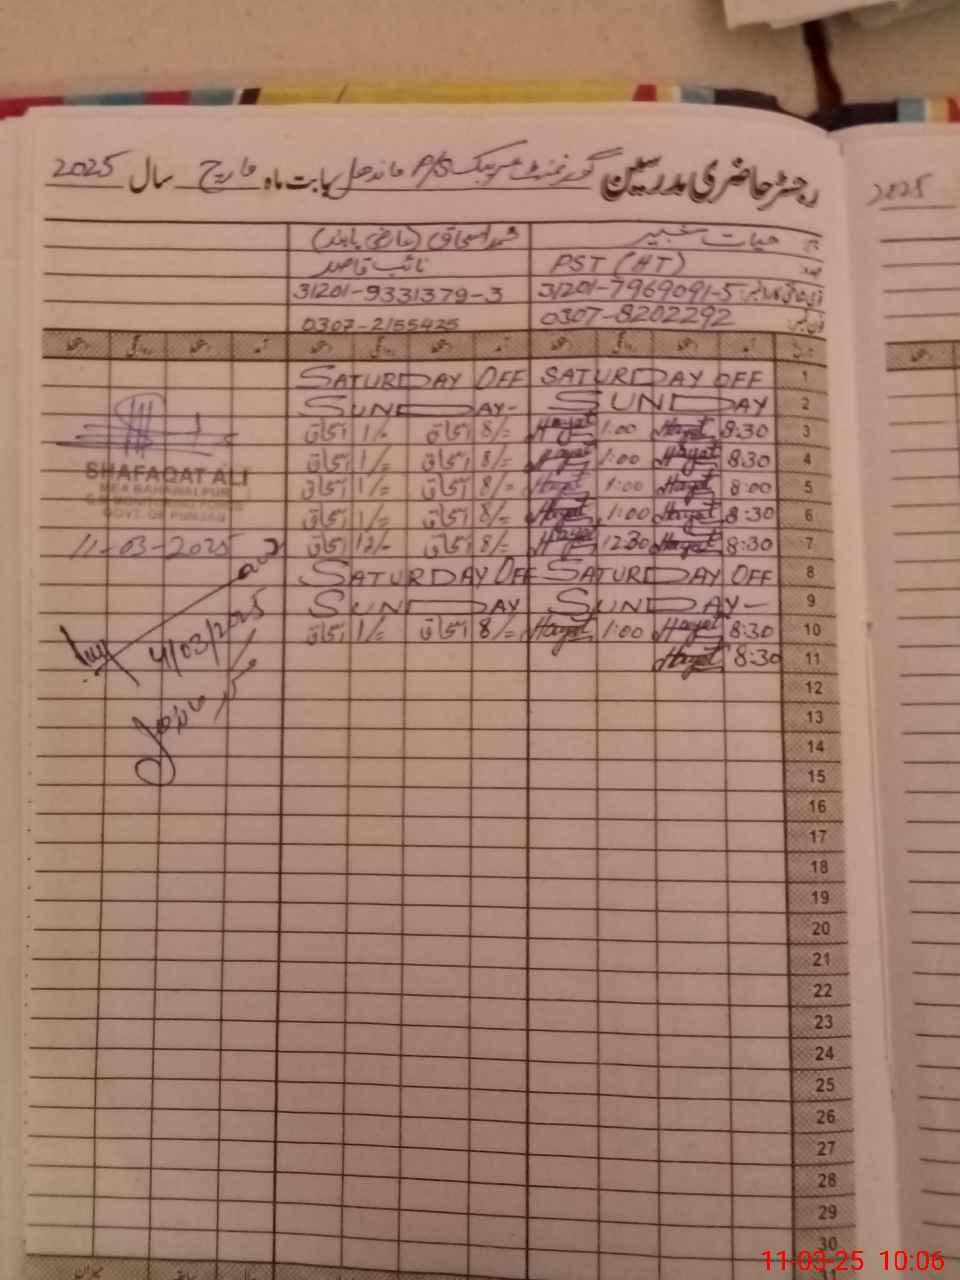 رجسٹر حاضری مدرسین گورنمنٹ P/S بابت ماہ مارچ سال 2025
2025
حیات شبیر محمد اسحاق
PST (HT) نائب قاصد
31201-7969091-5 31201-9331379-3
0307-8202292 0307-2155425
1 SATURDAY OFF SATURDAY OFF
2 SUNDAY SUNDAY-
3 8:30 Hayat 1:00 Hayat 8/= اسحاق 1/- اسحاق
4 8:30 Hayat 1:00 Hayat 8/= اسحاق 1/= اسحاق
SHAFAQAT ALI
5 8:00 Hayat 1:00 Hayat 8/= اسحاق 1/= اسحاق
MEA BAHAWALPUR
6 8:30 Hayat 1:00 Hayat 8/= اسحاق 1/= اسحاق
GOVT. OF PUNJAB
7 8:30 Hayat 12:30 Hayat 8/= اسحاق 12/- اسحاق
11-03-2025
8 SATURDAY OFF SATURDAY OFF
9 SUNDAY- SUNDAY
10 8:30 Hayat 1:00 Hayat 8/= اسحاق 1/= اسحاق
11 8:30 Hayat
12
13
14
15
16
17
18
19
20
21
22
23
24
25
26
27
28
29
30
11-03-25 10:06